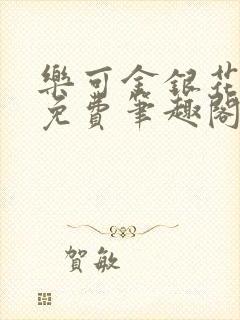 樂可金銀花
免費筆趣閣
賀敏